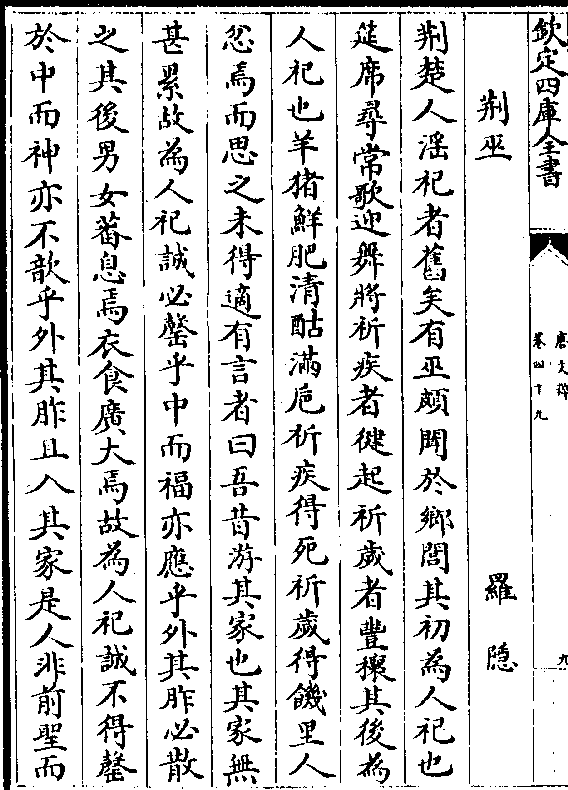 欽定四庫全書
唐文粹
卷四十九
九
荆巫
羅隱
荆楚人淫祀者舊矣有巫頗聞於鄉閭其初為人祀也
筵席尋常歌迎舞將祈疾者健起祈歲者豐穰其後為
人祀也羊猪鮮肥清酤滿巵祈疾得死祈歲得饑里人
忿焉而思之未得適有言者曰吾昔游其家也其家無
甚累故為人祀誠必罄乎中而福亦應乎外其胙必散
之其後男女蕃息焉衣食廣大焉故為人祀誠不得罄
於中而神亦不歆乎外其胙且入其家是人非前聖而